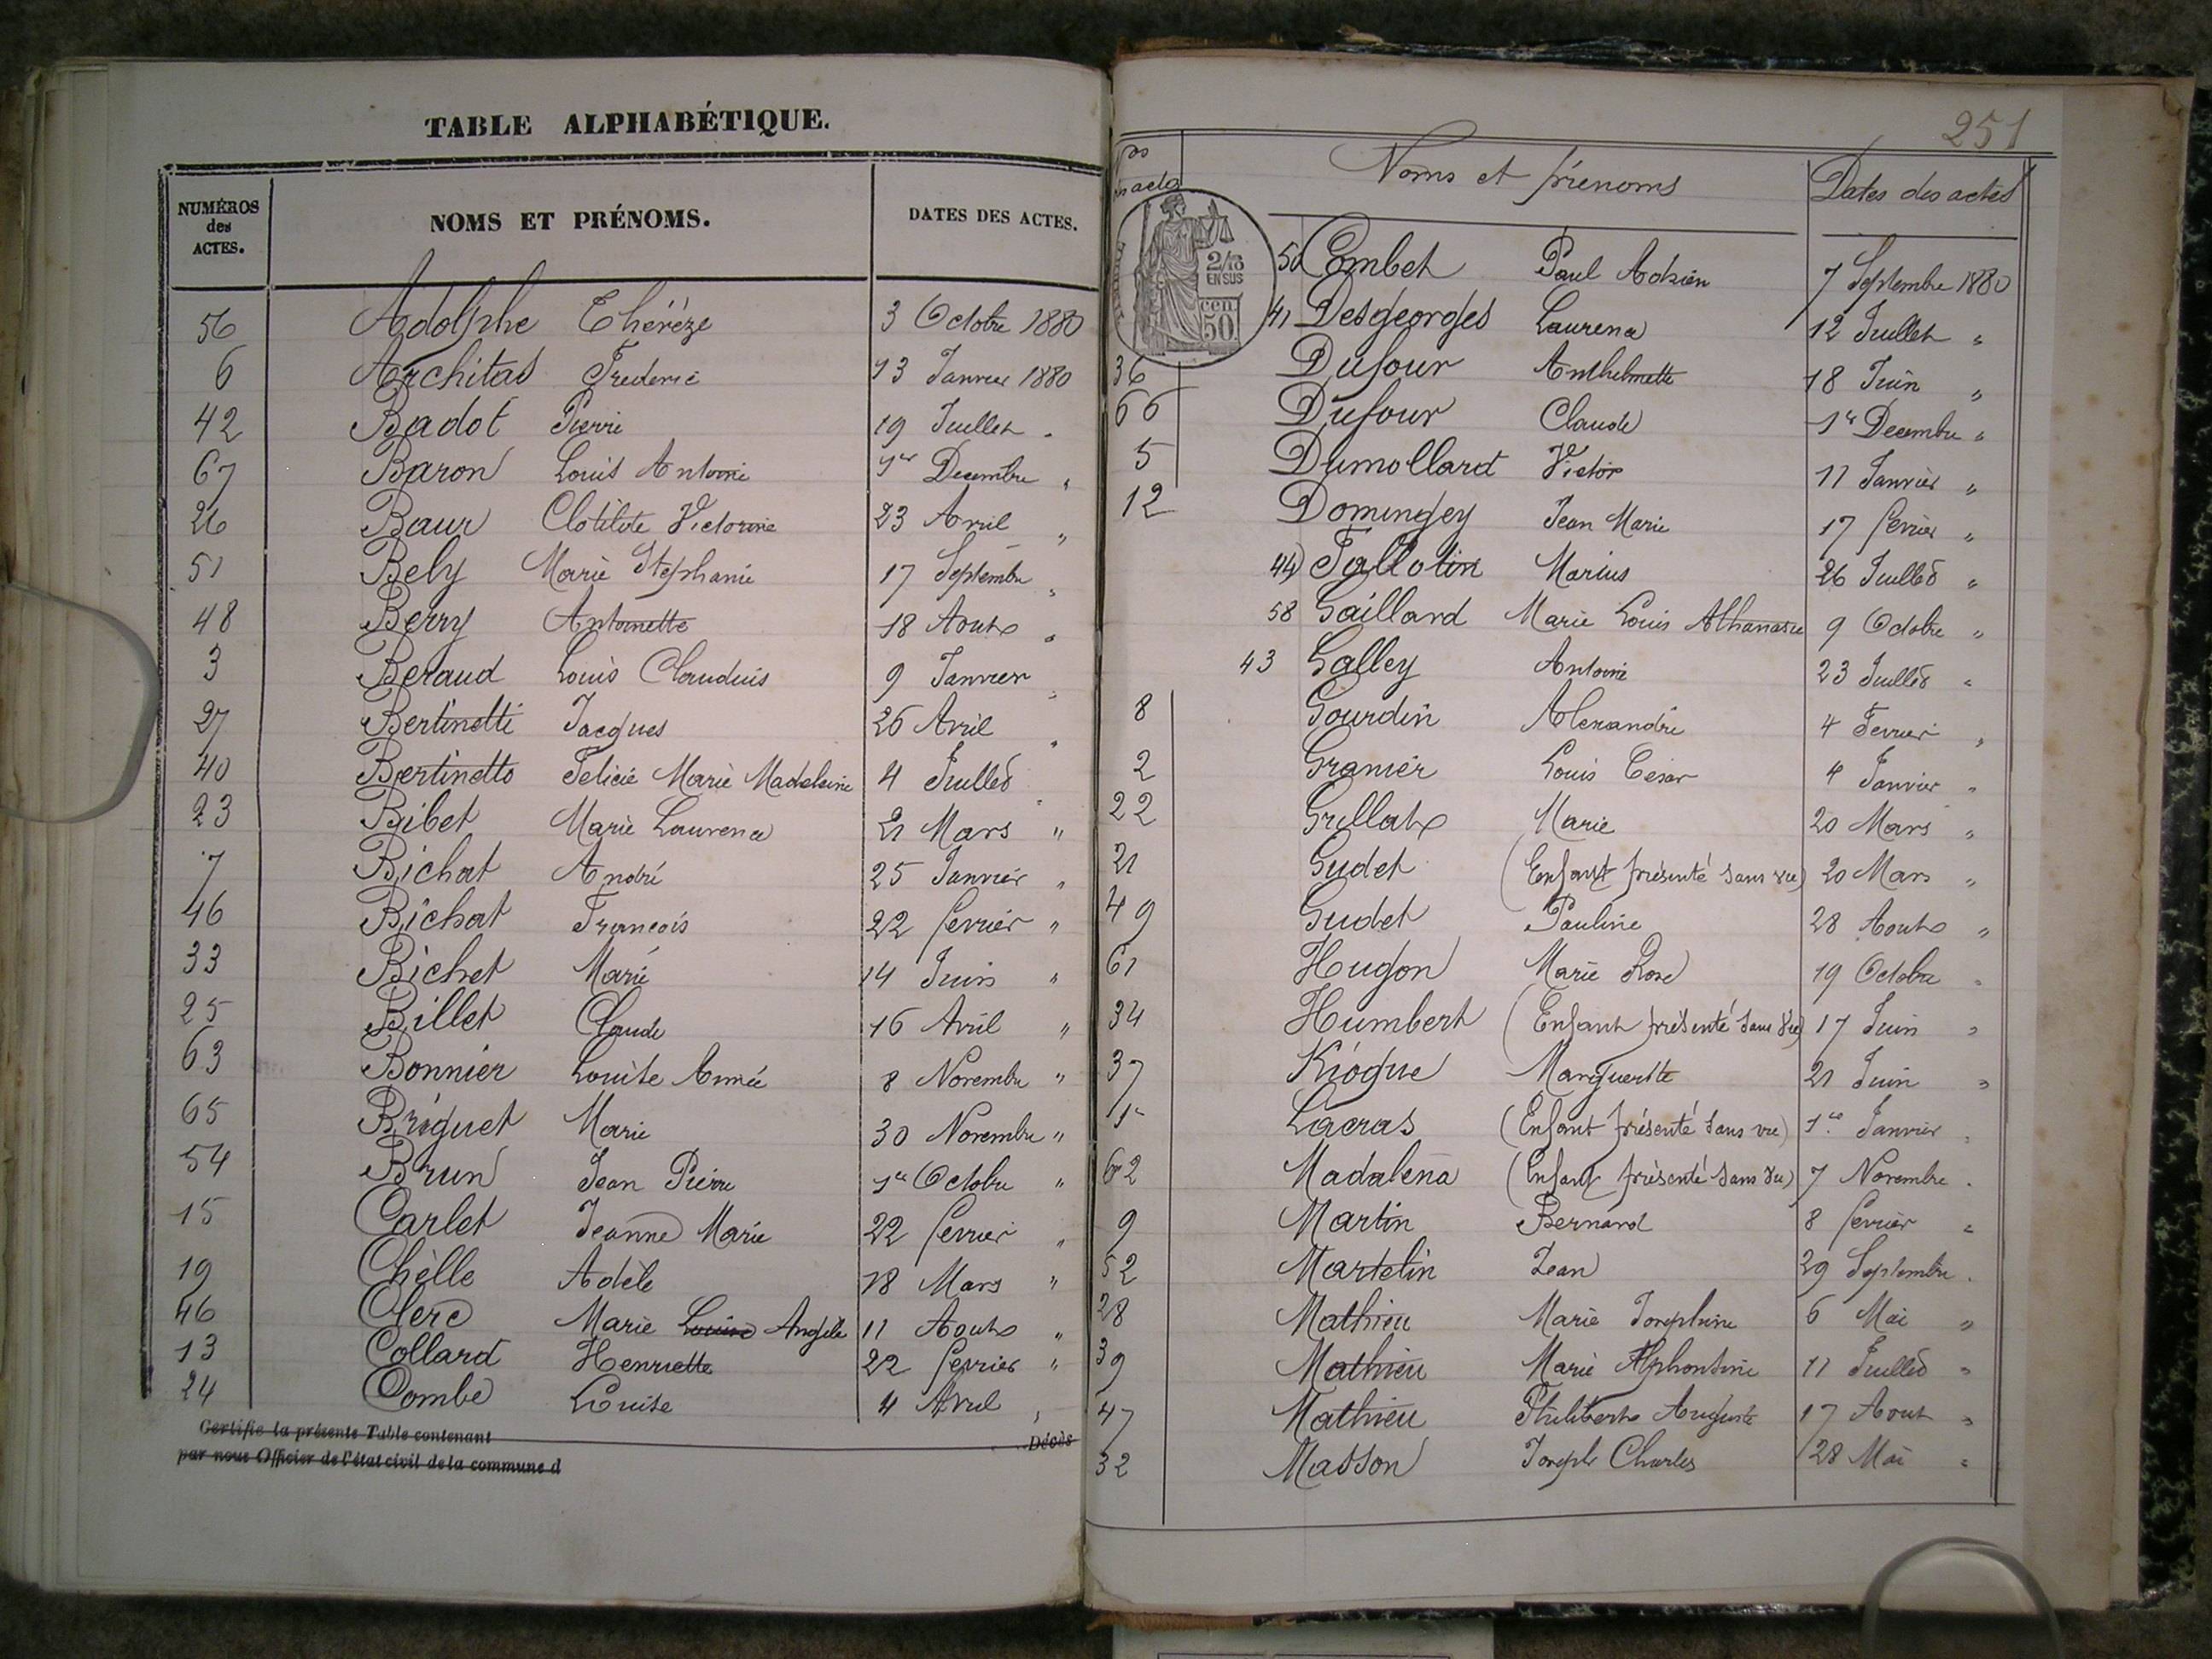 TABLE ALPHABÉTIQUE.
NUMÉROS des ACTES.
NOMS ET PRÉNOMS.
DATES DES ACTES.
56 Adolphe Théréze 3 Octobre 1880
6 Architas Frederic 13 Janvier 1880
42 Badot Pierre 19 Juillet "
67 Baron Louis Antoine 1er Decembre "
26 Baur Clotilde Victorine 23 Avril "
51 Bely Marie Stephanie 17 Septembre "
48 Berry Antoinette 18 Aout "
3 Beraud Louis Claudius 9 Janvier "
27 Bertinetti Jacques 26 Avril "
40 Bertinetto Felicie Marie Madeleine 4 Juillet "
23 Bibet Marie Laurence 21 Mars "
7 Bichat André 25 Janvier "
46 Bichat François 22 fevrier "
33 Bichet Marie 14 Juin "
25 Billet Claude 16 Avril "
63 Bonnier Louise Aimée 8 Novembre "
65 Briguet Marie 30 Novembre "
54 Brun Jean Pierre 1er Octobre "
15 Carlet Jeanne Marie 22 fevrier "
19 Chèlle Adèle 18 Mars "
46 Clerc Marie Louise Angèle 11 Aout "
13 Collard Henriette 22 fevrier "
24 Combe Louise 4 Avril "
Certifie la présente Table contenant Décès
par nous Officier de l'état civil de la commune d
251
Nos des actes
Noms et prénoms
Dates des actes
2/10 EN SUS
50 cen
50 Combet Paul Adrien 7 Septembre 1880
41 Desgeorges Laurence 12 Juillet "
36 Dufour Anthelmette 18 Juin "
66 Dufour Claude 1er Decembre "
5 Dumollard Victor 11 Janvier "
12 Domingey Jean Marie 17 fevrier "
44 Fallotin Marius 26 Juillet "
58 Gaillard Marie Louis Athanase 9 Octobre "
43 Galley Antoine 23 Juillet "
8 Gourdin Alexandre 4 Fevrier "
2 Granier Louis César 4 Janvier "
22 Grillat Marie 20 Mars "
21 Gudet (Enfant présenté sans vie) 20 Mars "
49 Gudet Pauline 28 Aout "
61 Hugon Marie Rose 19 Octobre "
34 Humbert (Enfant présenté sans vie) 17 Juin "
37 Kiogue Marguerite 21 Juin "
1er Lacras (Enfant présenté sans vie) 1er Janvier "
62 Madalena (Enfant présenté sans vie) 7 Novembre "
9 Martin Bernard 8 fevrier "
52 Martelin Jean 29 Septembre "
28 Mathieu Marie Josephine 6 Mai "
39 Mathieu Marie Alphonsine 11 Juillet "
47 Mathieu Philibert Auguste 17 Aout "
32 Masson Joseph Charles 28 Mai "